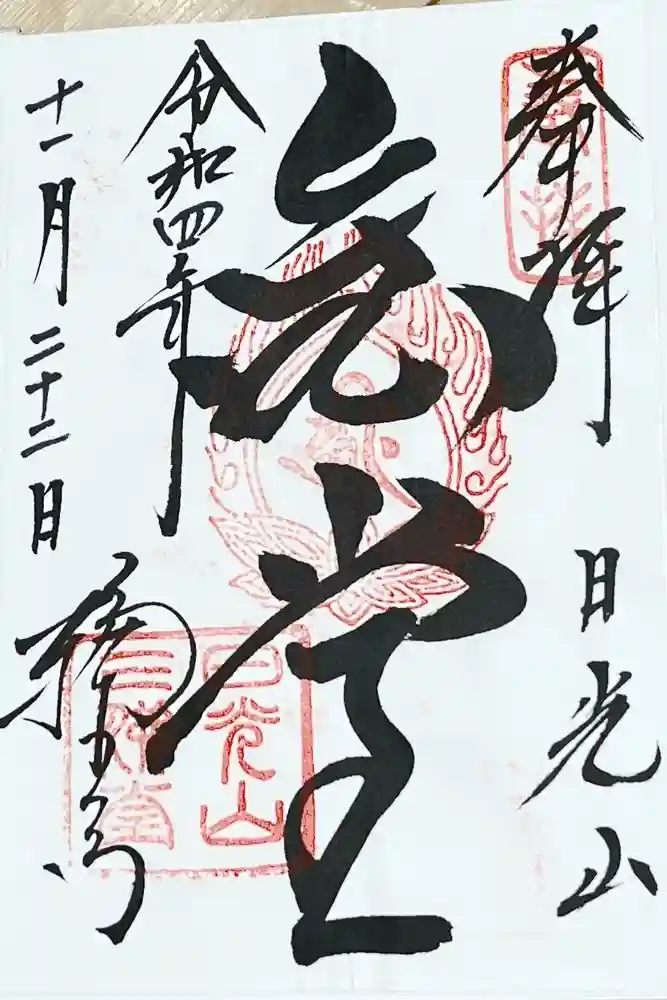 奉拝
日光山
金堂
令和四年
十一月二十二日
輪王寺
日光山
三佛堂